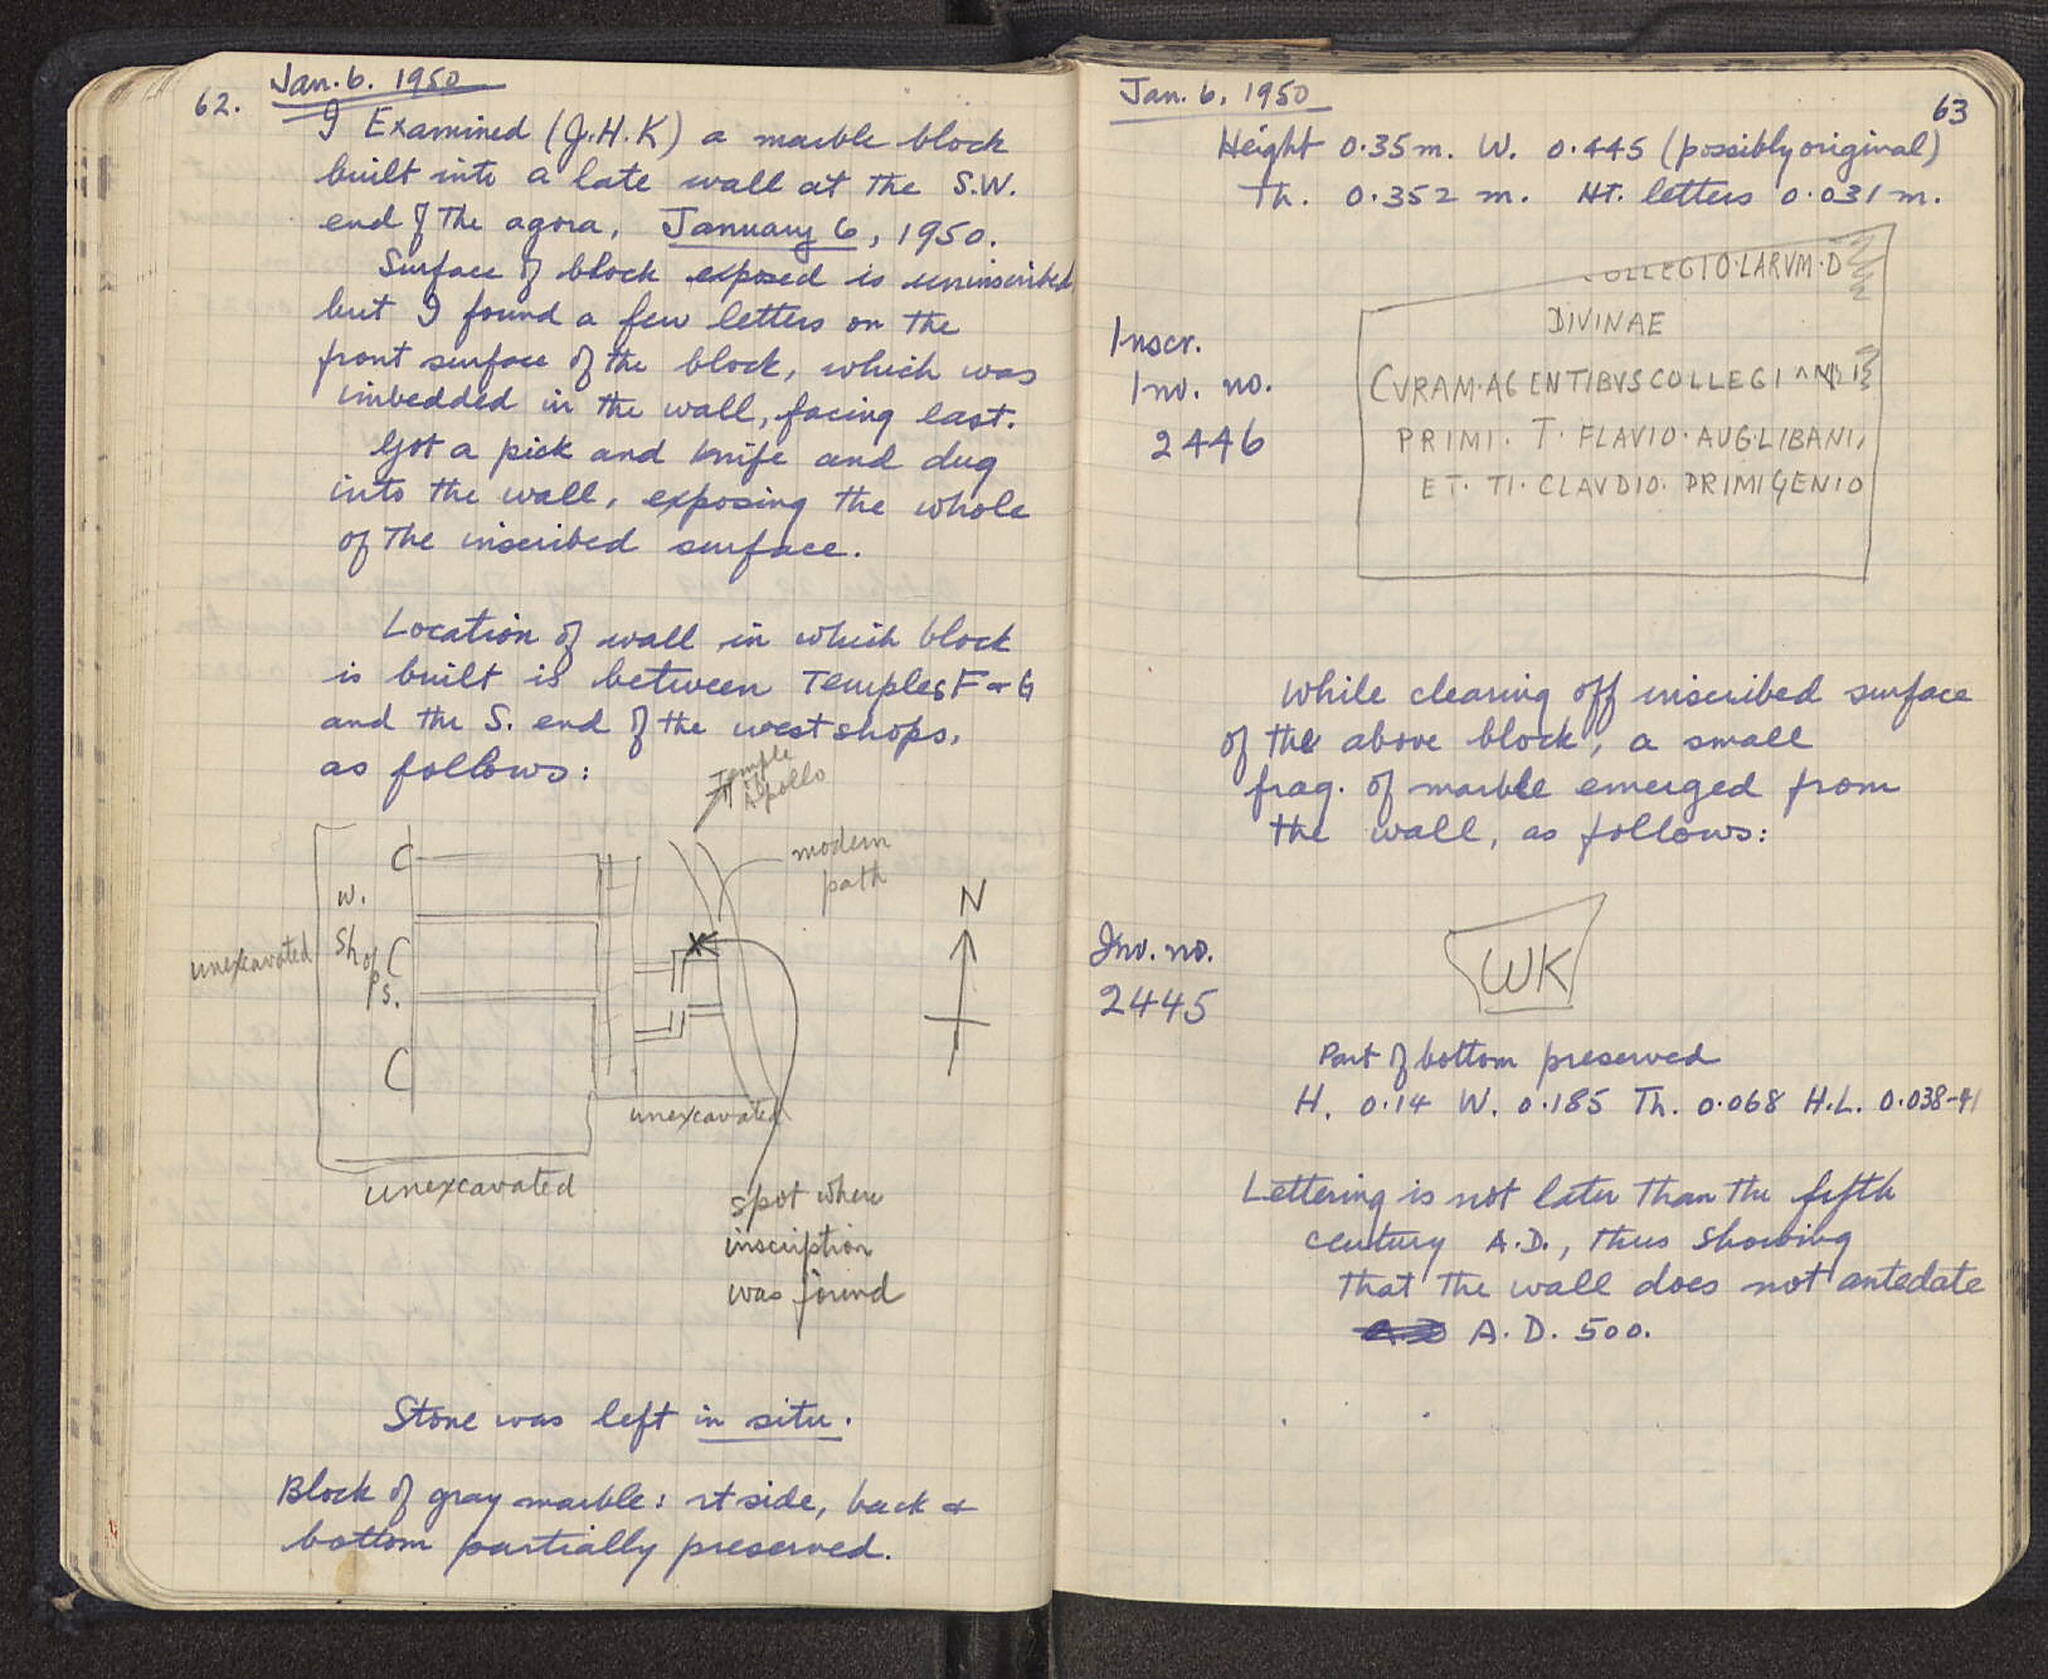 62.
Jan. 6. 1950
I Examined (J.H.K) a marble block
built into a late wall at the S.W.
end of the agora, January 6, 1950.
Surface of block exposed is uninscribed,
but I found a few letters on the
front surface of the block, which was
imbedded in the wall, facing east.
Got a pick and knife and dug
into the wall, exposing the whole
of the inscribed surface.
Location of wall in which block
is built is between Temples F + G
and the S. end of the west shops,
as follows:
Temple
Apollo
modern
path
N
C
W.
Shops.
C
C
unexcavated
unexcavated
unexcavated
spot where
inscription
was found
Stone was left in situ.
Block of gray marble: rt side, back +
bottom partially preserved.
Jan. 6, 1950
63
Height 0.35 m. W. 0.445 (possibly original)
Th. 0.352 m. Ht. letters 0.031 m.
Inscr.
Inv. no.
2446
COLLEGIO·LARVM·D
DIVINAE
CVRAM·AGENTIBVSCOLLEGI
PRIMI· T· FLAVIO·AUG·LIBANI,
ET· TI· CLAVDIO· PRIMIGENIO
While clearing off inscribed surface
of the above block, a small
frag. of marble emerged from
the wall, as follows:
Inv. no.
2445
WK
Part of bottom preserved
H. 0.14 W. 0.185 Th. 0.068 H.L. 0.038-41
Lettering is not later than the fifth
century A.D., thus showing
that the wall does not antedate
A.D. 500.